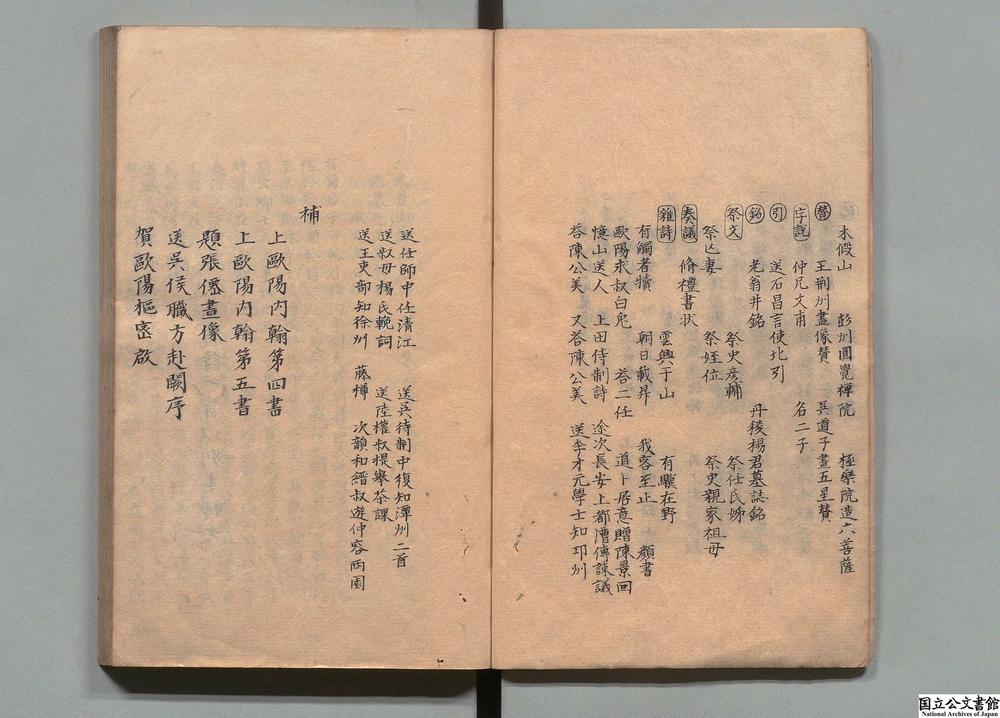 木假山　彭州圓覺禪院　極樂院造六菩薩
賛　王荆州畫像賛　吳道子畫五星賛
字說　仲兄文甫　名二子
引　送石昌言使北引
銘　老翁井銘　丹稜楊君墓誌銘
祭文　祭史彦輔　祭任氏姊
祭亡妻　祭姪位　祭史親家祖母
奏議　脩禮書状
雜詩　雲興于山　有驥在野
有觸者犢　朝日載昇　我客至止　顔書
歐陽永叔白兔　荅二任　道卜居意贈陳景回
憶山送人　上田待制詩　途次長安上都漕傳諫議
荅陳公美　又荅陳公美　送李才元學士知邛州
送任師中任清江　送吳待制中復知潭州二首
送叔母楊氏輓詞　送陸權叔提舉茶課
送王吏部知徐州　藤樽　次韻和縉叔遊仲容兩園
補
上歐陽内翰第四書
上歐陽内翰第五書
題張僊畫像
送吳侯職方赴闕序
賀歐陽樞密啟
国立公文書館
National Archives of Japan